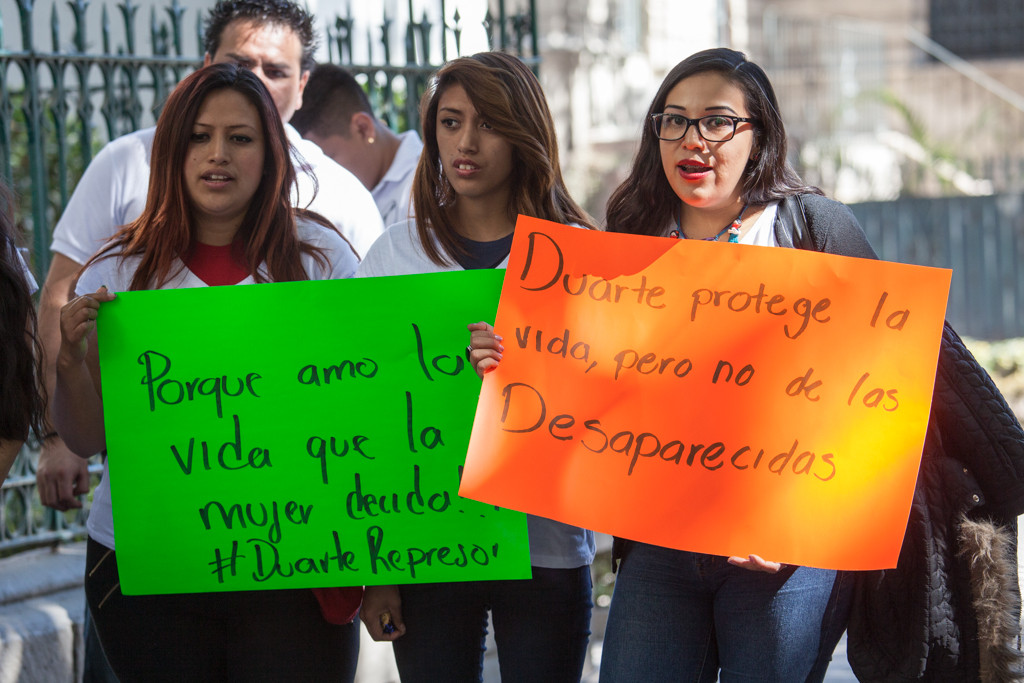 Porque amo la
vida que la
mujer decida!!!
#DuarteRepresor
Duarte protege la
vida, pero no de las
Desaparecidas